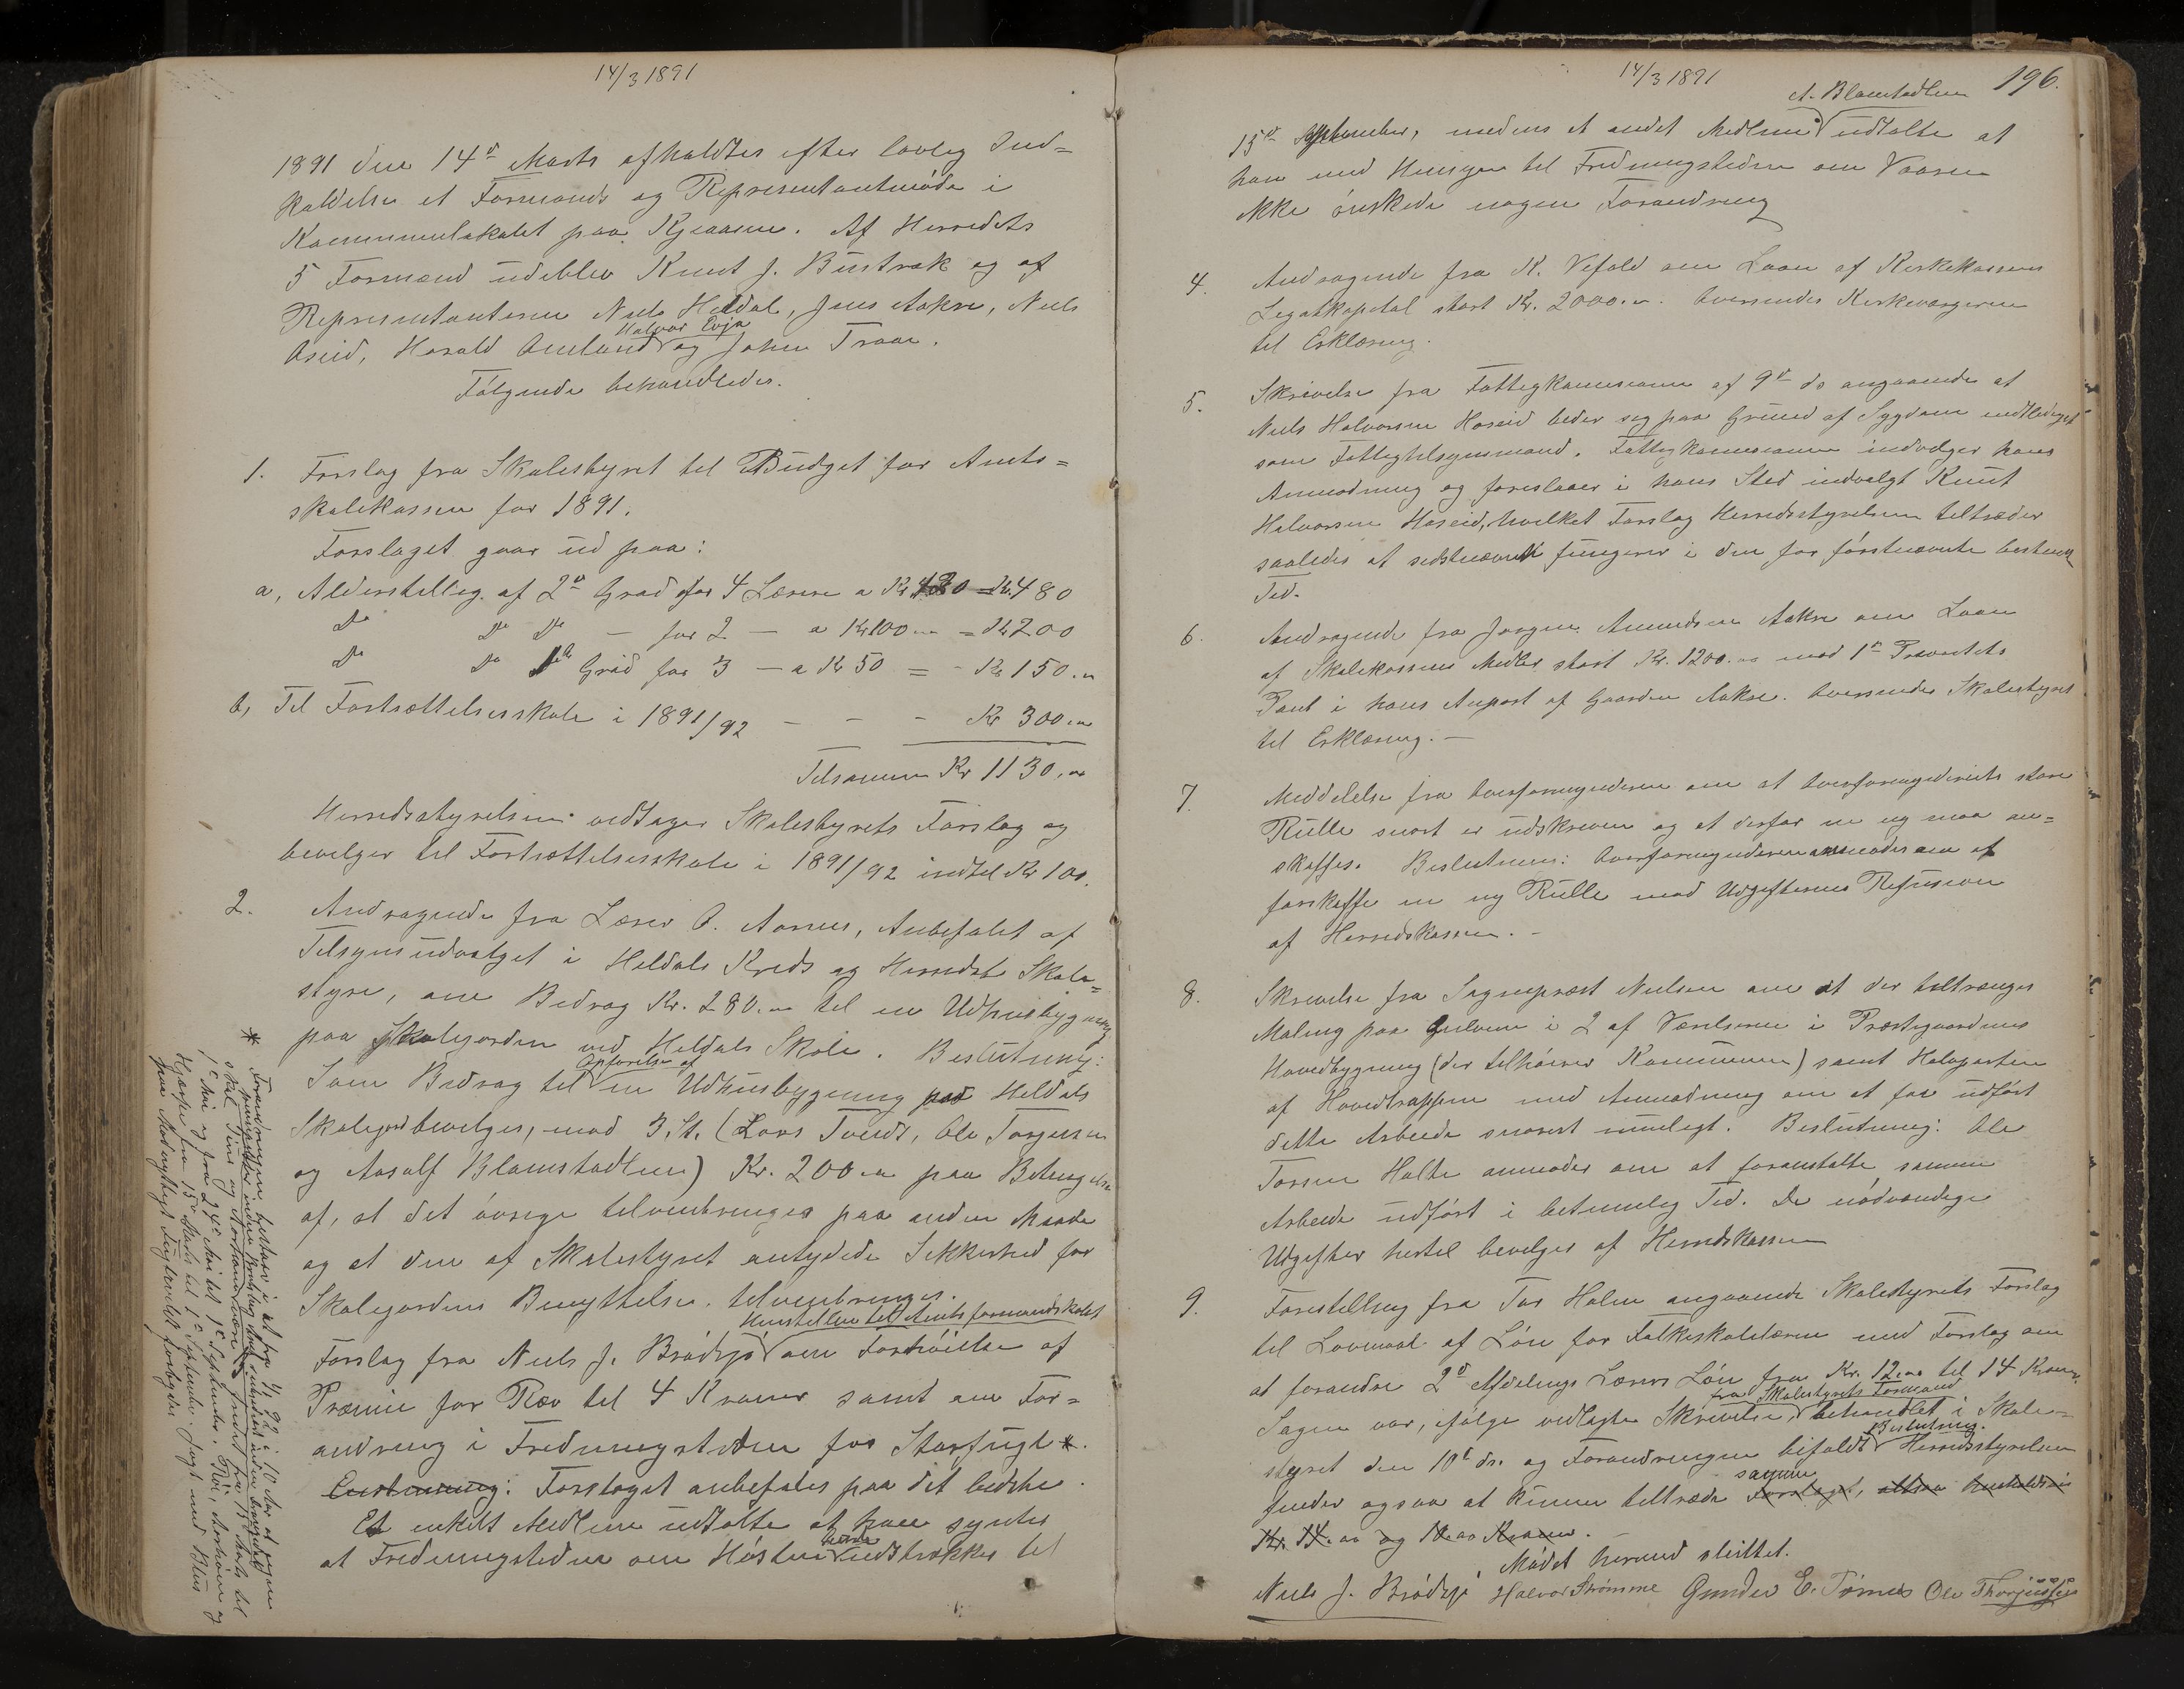 14/3 1891
1891 den 14de Marts afholdtes efter lovlig Ind=
kaldelse et Formands og Repræsentantmøde i
Kommunelokalet paa Kjeaasen. Af Herredets
5 Formænd udeblev Knut J. Bustrak og af
Repræsentanterne Niels Heldal, Jens Aakre, Niels
Halvor Evja
Oseid, Harald Omlund og Johan Traae.
Følgende behandledes.
1. Forslag fra Skolestyret til Budget for Amts=
skolekassen for 1891.
Forslaget gaar ud paa:
a, Alderstillæg af 2den Grad for 4 Lærere a Kr 120 = Kr 480
Do Do Do — for 2 — a Kr 100 = Kr 200
Do Do 1ste Grad for 3 — a Kr 50 = - Kr 150.
b, Til Fortsættelsesskole i 1891/92 - - - Kr 300.
Tilsammen Kr 1130.
Herredsstyrelsen vedtager Skolestyrets Forslag og
bevilger til Fortsættelsesskole i 1891/92 indtil Kr 100.
2. Andragende fra Lærer O. Aarnes, Anbefalet af
Tilsynsudvalget i Heldals Kreds og Herredets Skole=
styre, om Bidrag Kr. 280. til en Udhusbygning
paa Skolejorden ved Heldals Skole. Beslutning:
Opførelse af
Som Bidrag til en Udhusbygning paa Heldals
Skolejord bevilges, mod 3 St. (Lars Tveidt, Ole Torgersen
og Aasulf Blamstadlien) Kr. 200 paa Betingelse
af, at det øvrige tilveiebringes paa anden Maade
og at den af Skolestyret antydede Sikkerhed for
Skolejordens Benyttelse tilveiebringes.
Henstillen til Amtsformandskabet
Forslag fra Niels J. Brödsjö om Forhöielse af
Præmie for Ræv til 4 Kroner samt om For=
andring i Fredningstiden for Storfugl *.
Beslutning: Forslaget anbefales paa det bedste.
Et enkelt Medlem udtalte at han syntes
burde
at Fredningstiden om Høsten udstrækkes til
* Forandringen bestaar i at fra 1/1 92 i 10 Aar at regne
skal Tiur og Aarhane være fredet fra 15 Marts til
1ste Mai og fra 24de Mai til 1ste September. Röi, Aarhöne og
Hjærpe fra 15de Marts til 1ste September. Jagt med Blus
14/3 1891
196.
A. Blamstadlien
15de September, medens et andet Medlem udtalte at
han med Hensyn til Fredningstiden om Vaaren
ikke ønskede nogen Forandring
4. Andragende fra K. Vefald om Laan af Kirkekassens
Legatkapital stort Kr. 2000. Oversendes Kirkeværgerne
til Erklæring.
5. Skrivelse fra Fattigkommissionen af 9de ds angaaende at
Niels Halvorsen Haseid beder sig paa Grund af Sygdom entlediget
som Fattigtilsynsmand. Fattigkommissionen indvilger hans
Anmodning og foreslaaer i hans Sted indvalgt Knut
Halvorsen Haseid, hvilket Forslag Herredsstyrelsen tiltræder
saaledes at sidstnævnte fungerer i den for førstnævnte bestemte
Tid.
6. Andragende fra Jørgen Amundsen Aakre om Laan
af Skolekassens Midler stort Kr. 1200. mod 1ste Prioritets
Pant i hans Anpart af Gaarden Aakre. Oversendes Skolestyret
til Erklæring. —
7. Meddelelse fra Overformynderen om at Overformynderiets store
Rulle snart er udskreven og at derfor en ny maa an=
skaffes. Beslutning: Overformynderen anmodes om at
forskaffe en ny Rulle mod Udgifternes Refusion
af Herredskassen. -
8. Skrivelse fra Sognepræst Nielsen om at der tiltrænges
Maling paa Gulvene i 2 af Værelserne i Præstegaardens
Hovedbygning (der tilhører Kommunen) samt Halvparten
af Hovedtrappen med Anmodning om at faa udført
dette Arbeide snarest muligt. Beslutning: Ole
Torsen Holte anmodes om at foranstalte samme
Arbeide udført i betimelig Tid. De nødvendige
Udgifter hertil bevilges af Herredskassen
9. Forestilling fra Tor Holm angaaende Skolestyrets Forslag
til Lovmaal af Løn for Folkeskolelærerne med Forslag om
at forandre 2den Afdelings Lærers Løn fra Kr. 12.00 til 14 Kroner.
fra Skolestyrets Formand
Sagen var, ifølge vedlagte Skrivelse, behandlet i Skole=
Beslutning.
styret den 10de ds. og Forandringen bifaldt Herredsstyrelsen
samme
finder ogsaa at kunne tiltræde Forslaget, altsaa henholdsvis
Kr. 14.00 og 12.00 Kroner.
Mødet hermed sluttet.
Niels J. Brödsjö Halvor Strömme Gunder E. Tömes Ole Thorjussen